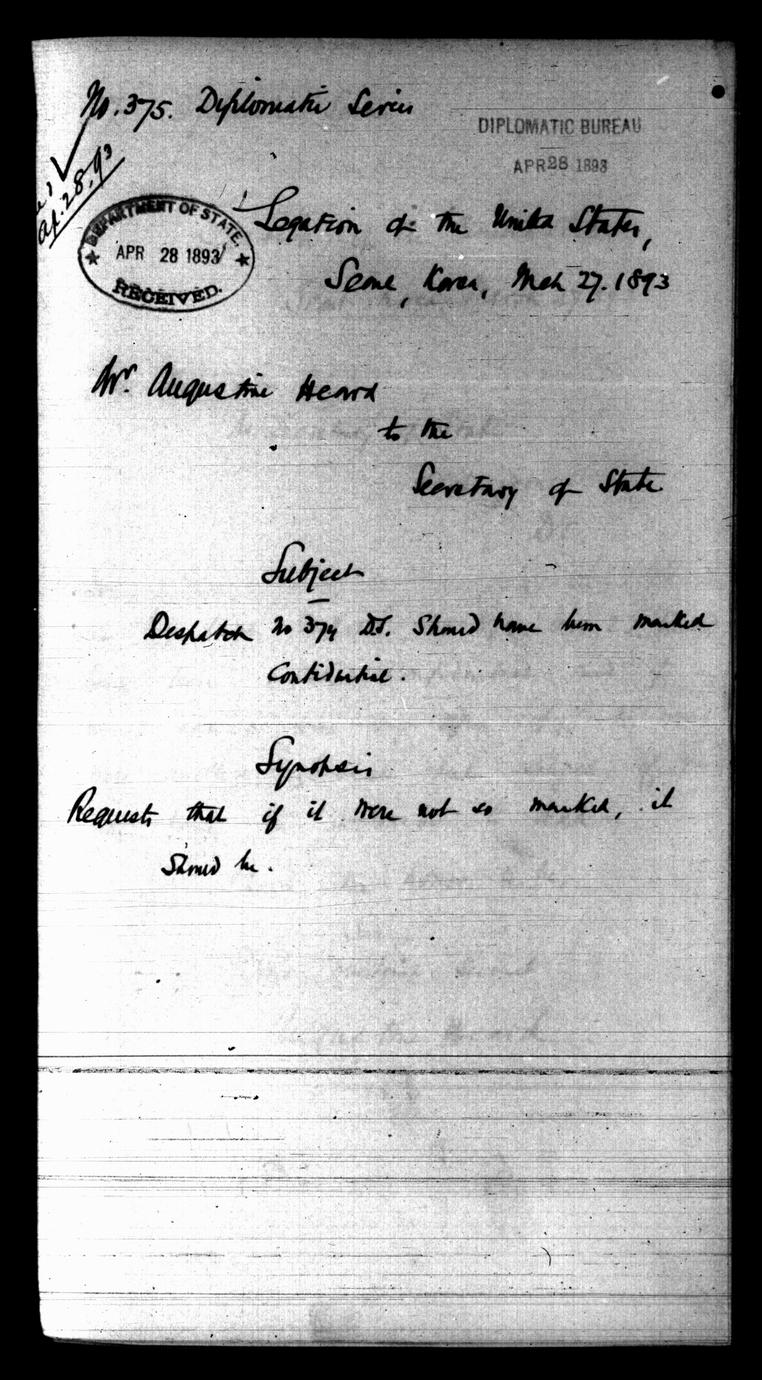 No. 375. Diplomatic Series
DIPLOMATIC BUREAU
APR 28 1893
Ap. 28. 93
DEPARTMENT OF STATE.
APR 28 1893
RECEIVED.
Legation of the United States,
Seoul, Korea, Mch 27. 1893
Mr. Augustine Heard
to the
Secretary of State
Subject
Despatch No 374 D.S. Should have been marked
Confidential.
Synopsis
Requests that if it were not so marked, it
should be.